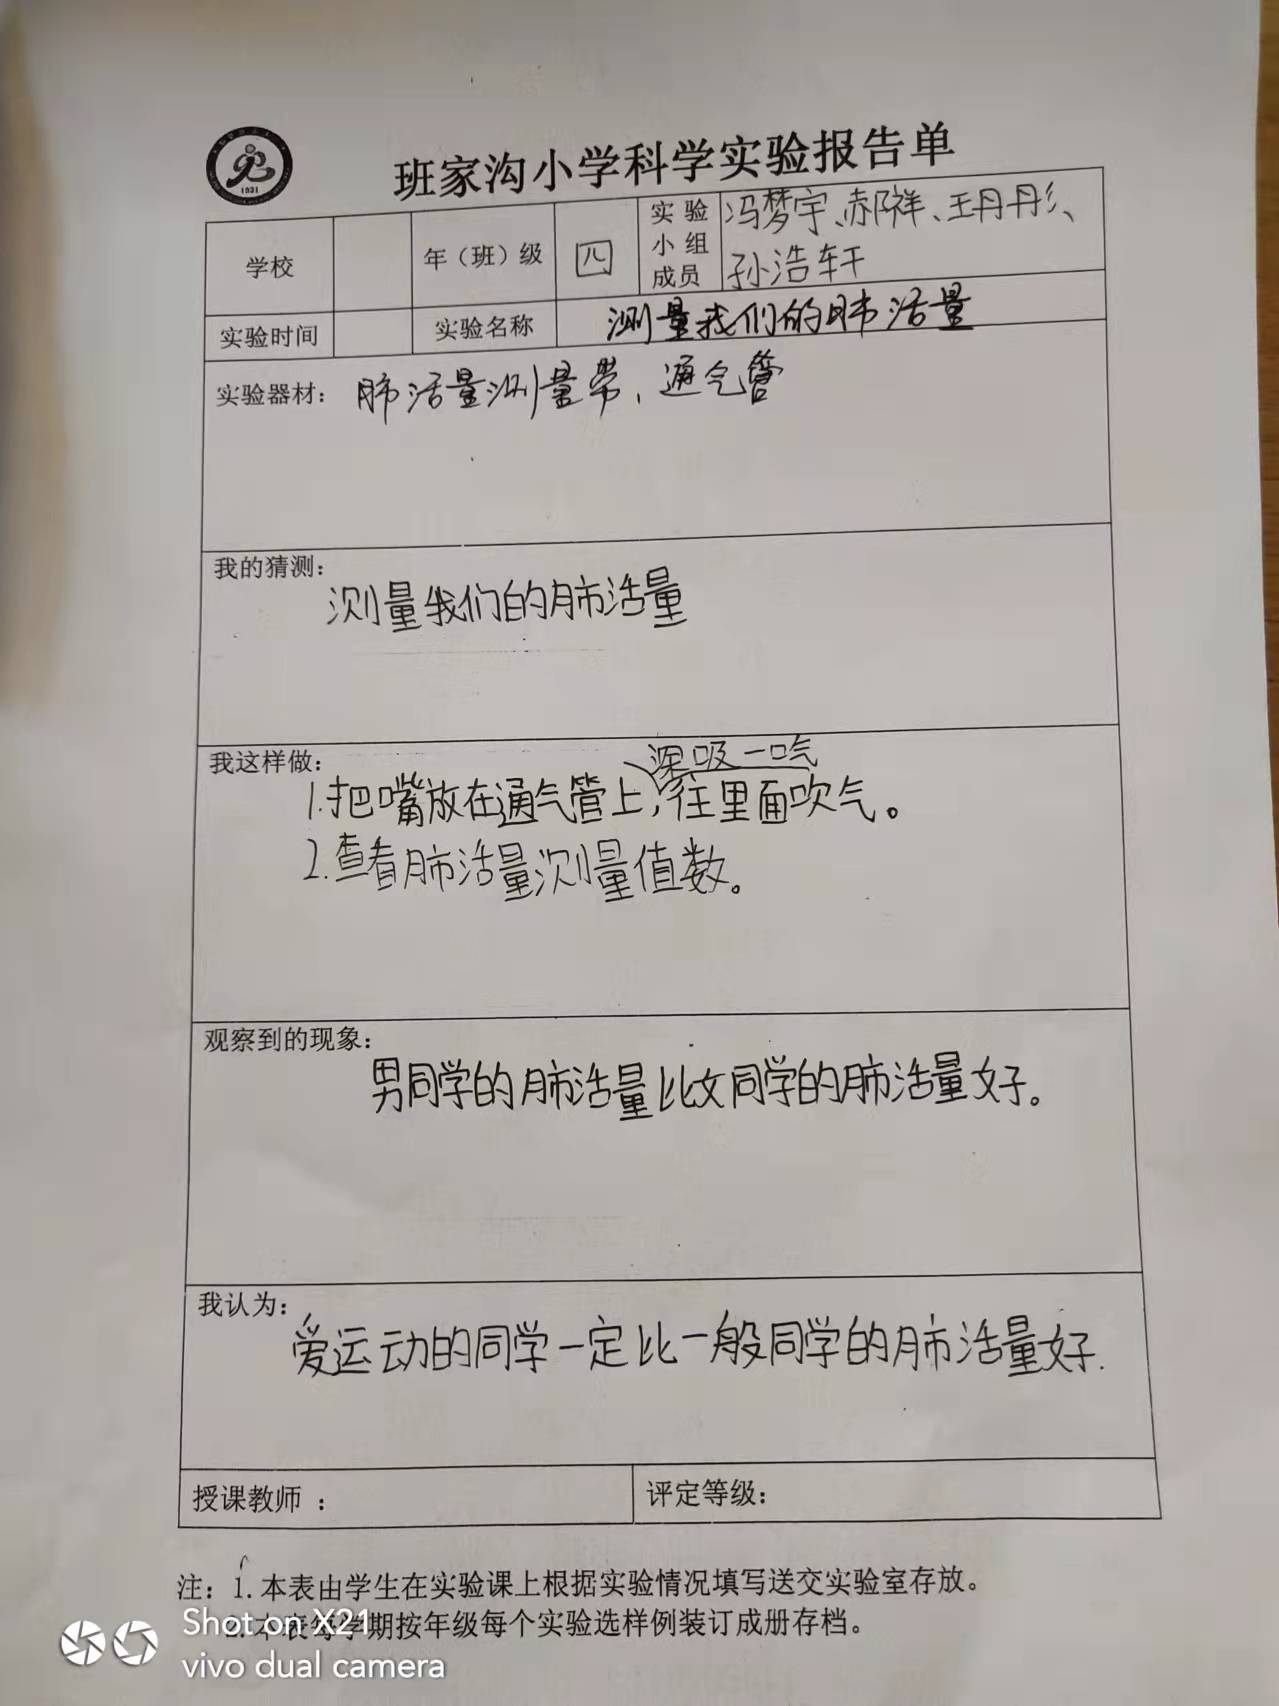 班家沟小学科学实验报告单
1931
学校 年（班）级 四 实验小组成员 冯梦宇、郝祥、王丹彤、
孙浩轩
实验时间 实验名称 测量我们的肺活量
实验器材： 肺活量测量带、通气管
我的猜测：
测量我们的肺活量
我这样做：
深吸一口气
1.把嘴放在通气管上，往里面吹气。
2.查看肺活量测量值数。
观察到的现象：
男同学的肺活量比女同学的肺活量好。
我认为：
爱运动的同学一定比一般同学的肺活量好.
授课教师 ： 评定等级：
注：1.本表由学生在实验课上根据实验情况填写送交实验室存放。
2.本表每学期按年级每个实验选样例装订成册存档。
Shot on X21
vivo dual camera